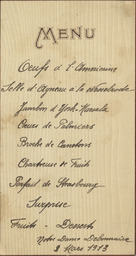 MENU
Oeufs à l'Américaine
Selle d'Agneau à la
Jambon d'York
Coeurs de Palmiers
Broche de Canetons
Chartreuse de Fruits
Parfait de Strasbourg
Surprise
Fruits - Dessert
Notre Dame Debonnaire
2 Mars 1913